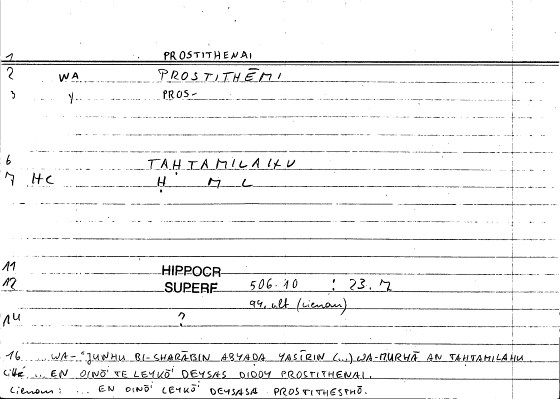 1 PROSTITHENAI
2 WA PROSTITHĒMI
3 Y PROS-
6 TAḤTAMILAHU
7 HC Ḥ M L
11 HIPPOCR
12 SUPERF 506.10 : 23.7
94, ult (Lienau)
14 ?
16 ... WA- JUNHU BI-SHARĀBIN ABYADA YASĪRIN (...) WA-MURHĀ AN TAHTAMILAHU
Litté ... EN OINŌ TE LEYKŌ DEYSAS DIDOY PROSTITHENAI.
Lienau: ... EN OINŌ LEYKŌ DEYSASA PROSTITHESTHŌ.